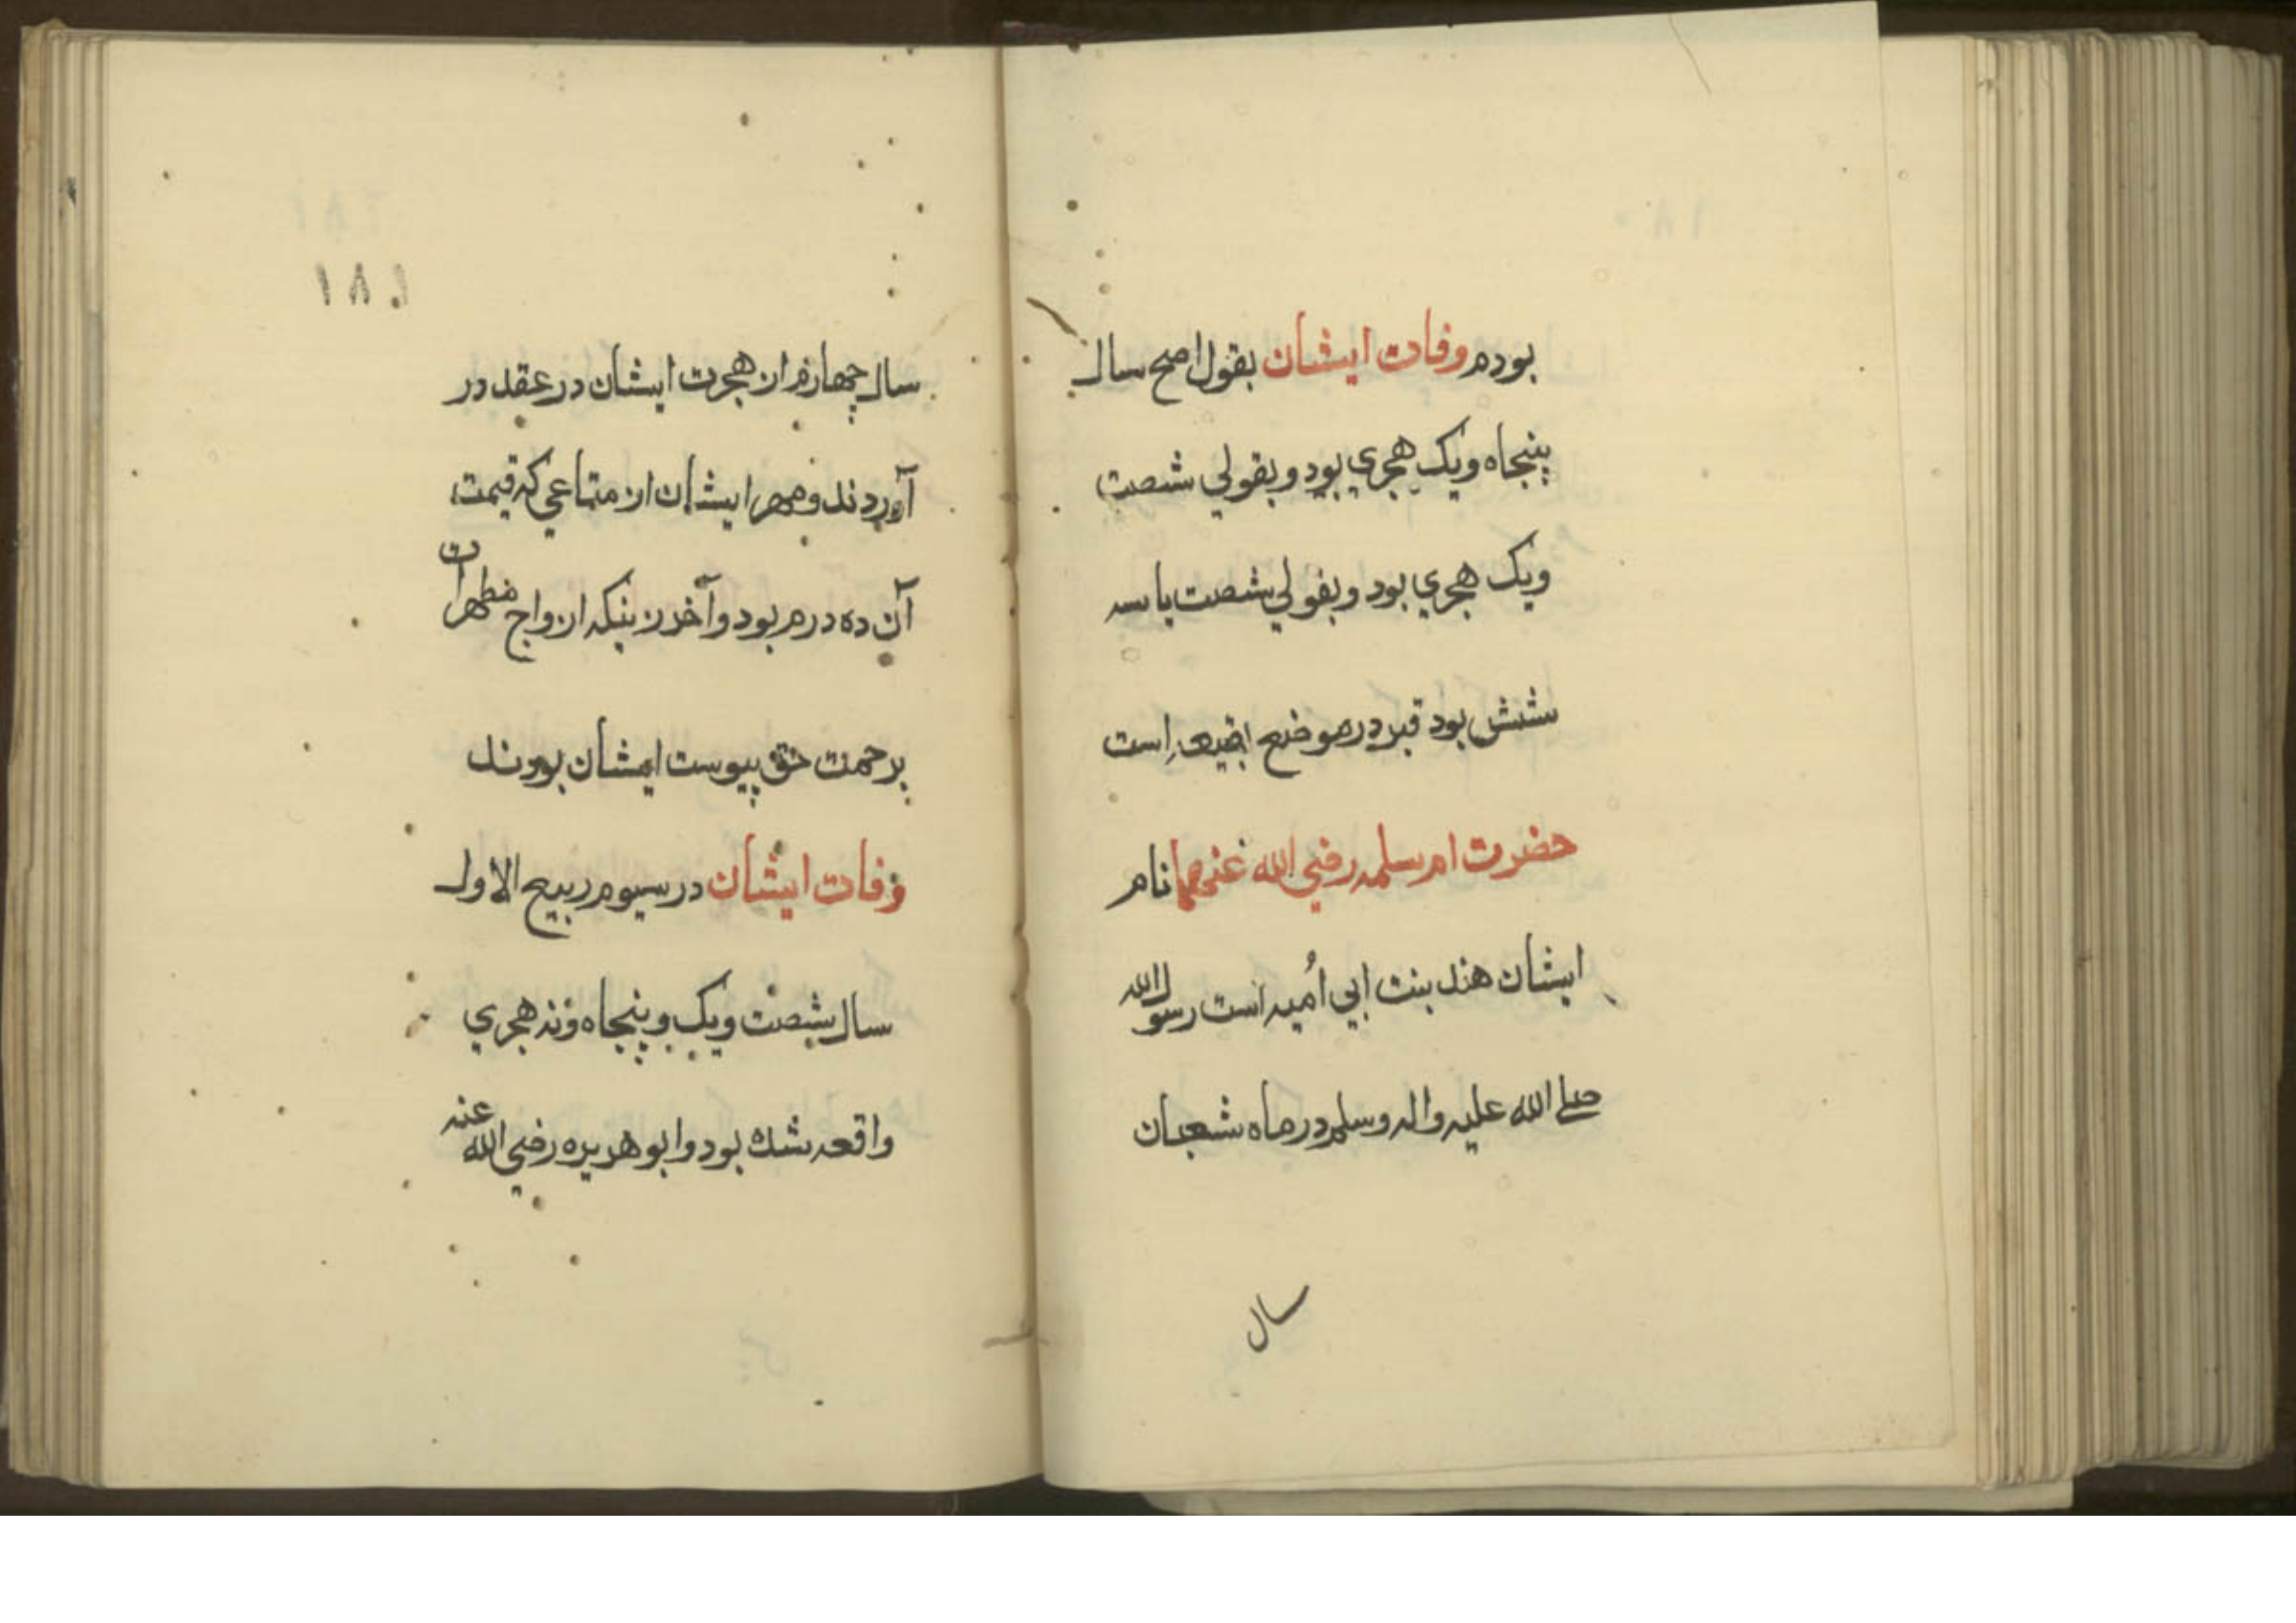 بودم وفات ایشان بقول اصح سال
پنجاه ویک هجري بود و بقولي شصت
ویک هجري بود وبقولي شصت یا سه
شش بود قبر در موضع بقیعه است
حضرت ام سلمه رضي الله عنهما نام
ایشان هند بنت ابي اُمیه است رسول الله
صلے الله علیه واله وسلم در ماه شعبان
سال
۱۸۱
سال چهارم از هجرت ایشان در عقد در
آوردند و مهر ایشان از متاعي که قیمت
آن ده درم بود و آخر زنیکه ازواج مطهرات
برحمت حق پیوست ایشان بودند
وفات ایشان در سیوم ربیع الاول
سال شصت ویک و پنجاه ونه هجري
واقعه شده بود وابو هریره رضي الله عنه